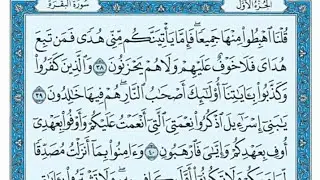 الجزء الأول
سورة البقرة
قُلْنَا ٱهْبِطُوا۟ مِنْهَا جَمِيعًۭا ۖ فَإِمَّا يَأْتِيَنَّكُم مِّنِّى هُدًۭى فَمَن تَبِعَ
هُدَاىَ فَلَا خَوْفٌ عَلَيْهِمْ وَلَا هُمْ يَحْزَنُونَ ٣٨ وَٱلَّذِينَ كَفَرُوا۟
وَكَذَّبُوا۟ بِـَٔايَـٰتِنَآ أُو۟لَـٰٓئِكَ أَصْحَـٰبُ ٱلنَّارِ ۖ هُمْ فِيهَا خَـٰلِدُونَ
٣٩ يَـٰبَنِىٓ إِسْرَٰٓءِيلَ ٱذْكُرُوا۟ نِعْمَتِىَ ٱلَّتِىٓ أَنْعَمْتُ عَلَيْكُمْ وَأَوْفُوا۟ بِعَهْدِىٓ
أُوفِ بِعَهْدِكُمْ وَإِيَّـٰىَ فَٱرْهَبُونِ ٤٠ وَءَامِنُوا۟ بِمَآ أَنزَلْتُ مُصَدِّقًۭا